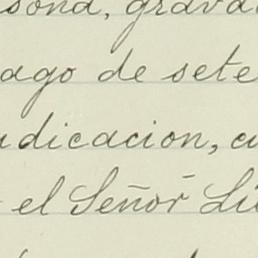 sona, grava
ago de sete
udicacion, cu
el Señor Lu